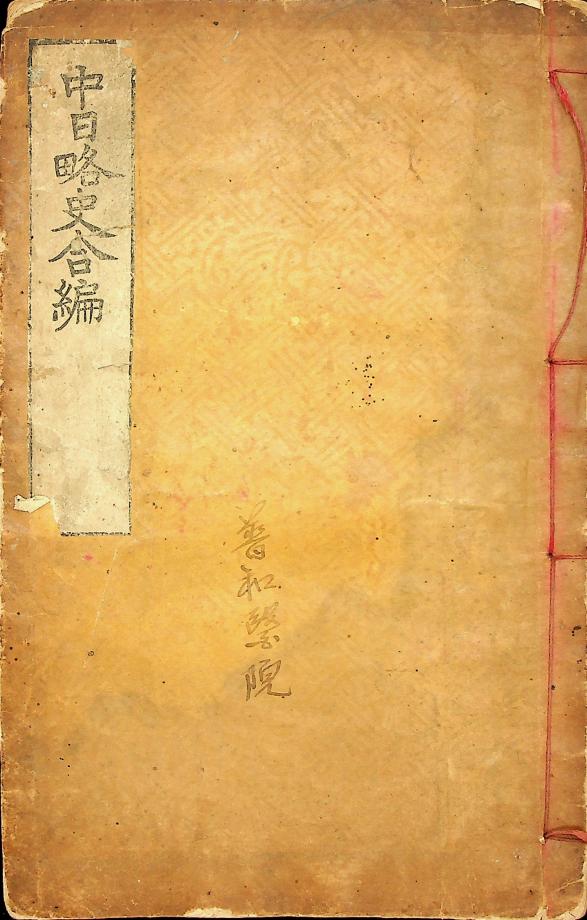 中日略史合編
普和醫院